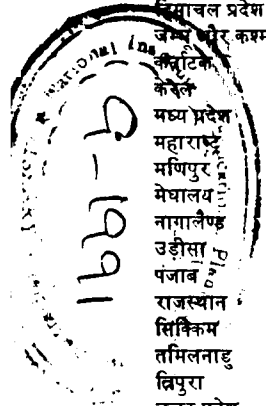 हिमाचल प्रदेश
जम्मू और कश्म
कर्नाटक
केरल
मध्य प्रदेश
महाराष्ट्र
मणिपुर
मेघालय
नागालैण्ड
उड़ीसा
पंजाब
राजस्थान
सिक्किम
तमिलनाडु
त्रिपुरा
G-1991
National Ins